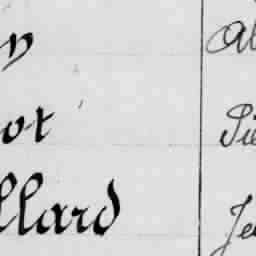 y Al
ot Pie
llard Je